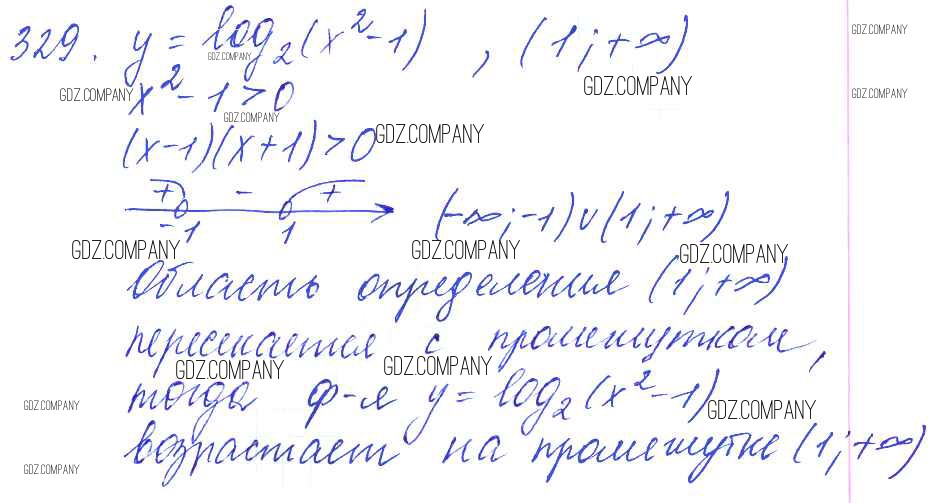 329. y = log₂(x²-1) , (1; +∞)
GDZ.COMPANY
GDZ.COMPANY
GDZ.COMPANY
x² - 1 > 0
GDZ.COMPANY
GDZ.COMPANY
GDZ.COMPANY
(x-1)(x+1) > 0
GDZ.COMPANY
+ - +
-1 1
(-∞; -1) ∪ (1; +∞)
GDZ.COMPANY
GDZ.COMPANY
GDZ.COMPANY
Область определения (1; +∞)
пересекается с промежутком,
GDZ.COMPANY
GDZ.COMPANY
тогда ф-я y = log₂(x²-1)
GDZ.COMPANY
GDZ.COMPANY
возрастает на промежутке (1; +∞)
GDZ.COMPANY